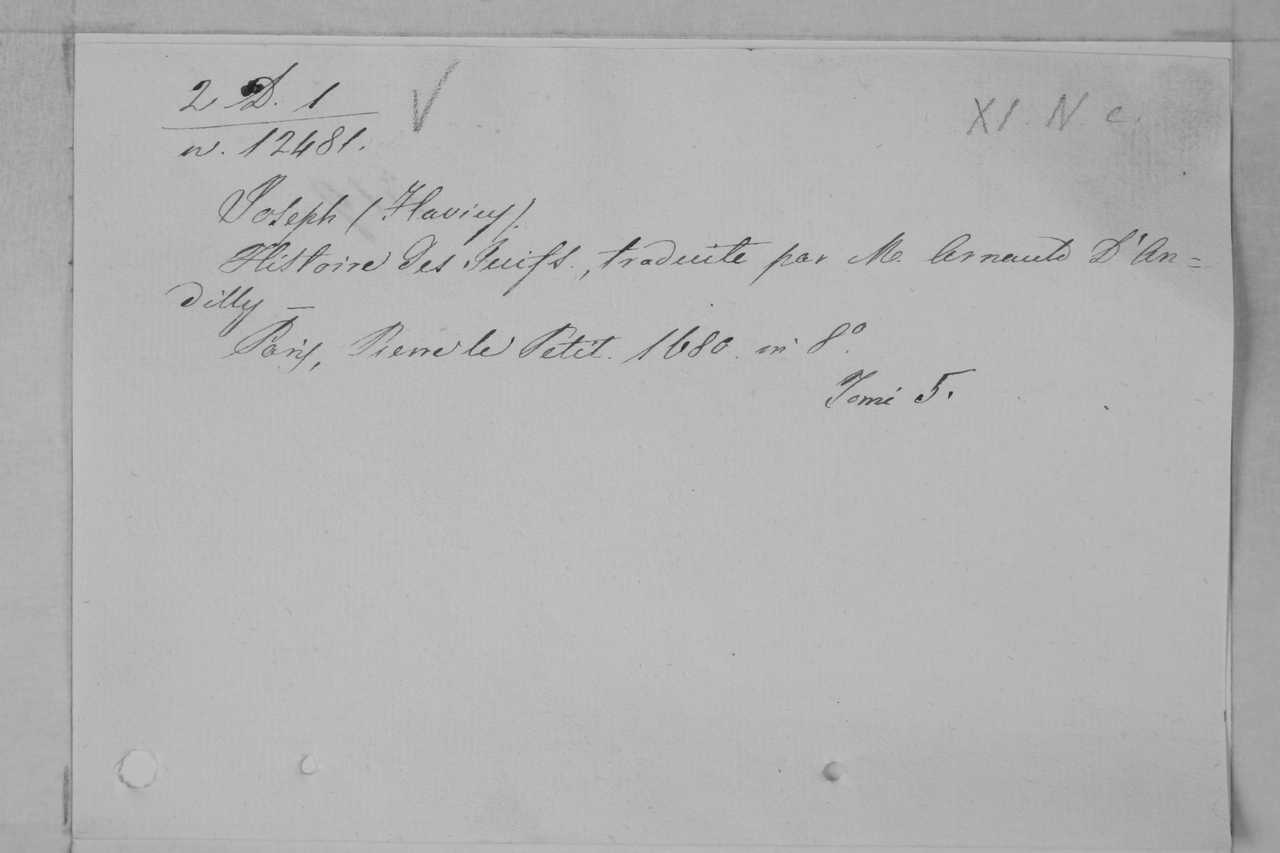 2 D. 1
n. 12481.
XI. N. c.
Joseph (Flavius).
Histoire des Juifs, traduite par M. Arnauld D'An=
dilly —
Paris, Pierre le Petit. 1680. in 8°.
Tomi 5.